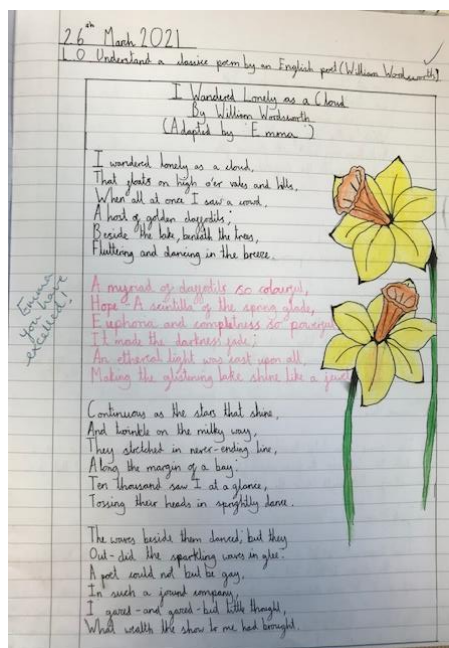 26th March 2021
L O Understand a classic poem by an English poet (William Wordsworth)
I Wandered Lonely as a Cloud
By William Wordsworth
(Adapted by Emma)
I wandered lonely as a cloud,
That floats on high o'er vales and hills,
When all at once I saw a crowd,
A host of golden daffodils;
Beside the lake, beneath the trees,
Fluttering and dancing in the breeze.
A myriad of daffodils so colourful,
Hope - A scintilla of the spring glade,
Euphoria and completness so powerful
It made the darkness fade;
An ethereal light was cast upon all,
Making the glistening lake shine like a jewel
Emma
you have
excelled!
Continuous as the stars that shine,
And twinkle on the milky way,
They stretched in never-ending line,
Along the margin of a bay:
Ten thousand saw I at a glance,
Tossing their heads in sprightly dance.
The waves beside them danced; but they
Out-did the sparkling waves in glee.
A poet could not but be gay,
In such a jocund company,
I gazed - and gazed - but little thought,
What wealth the show to me had brought.